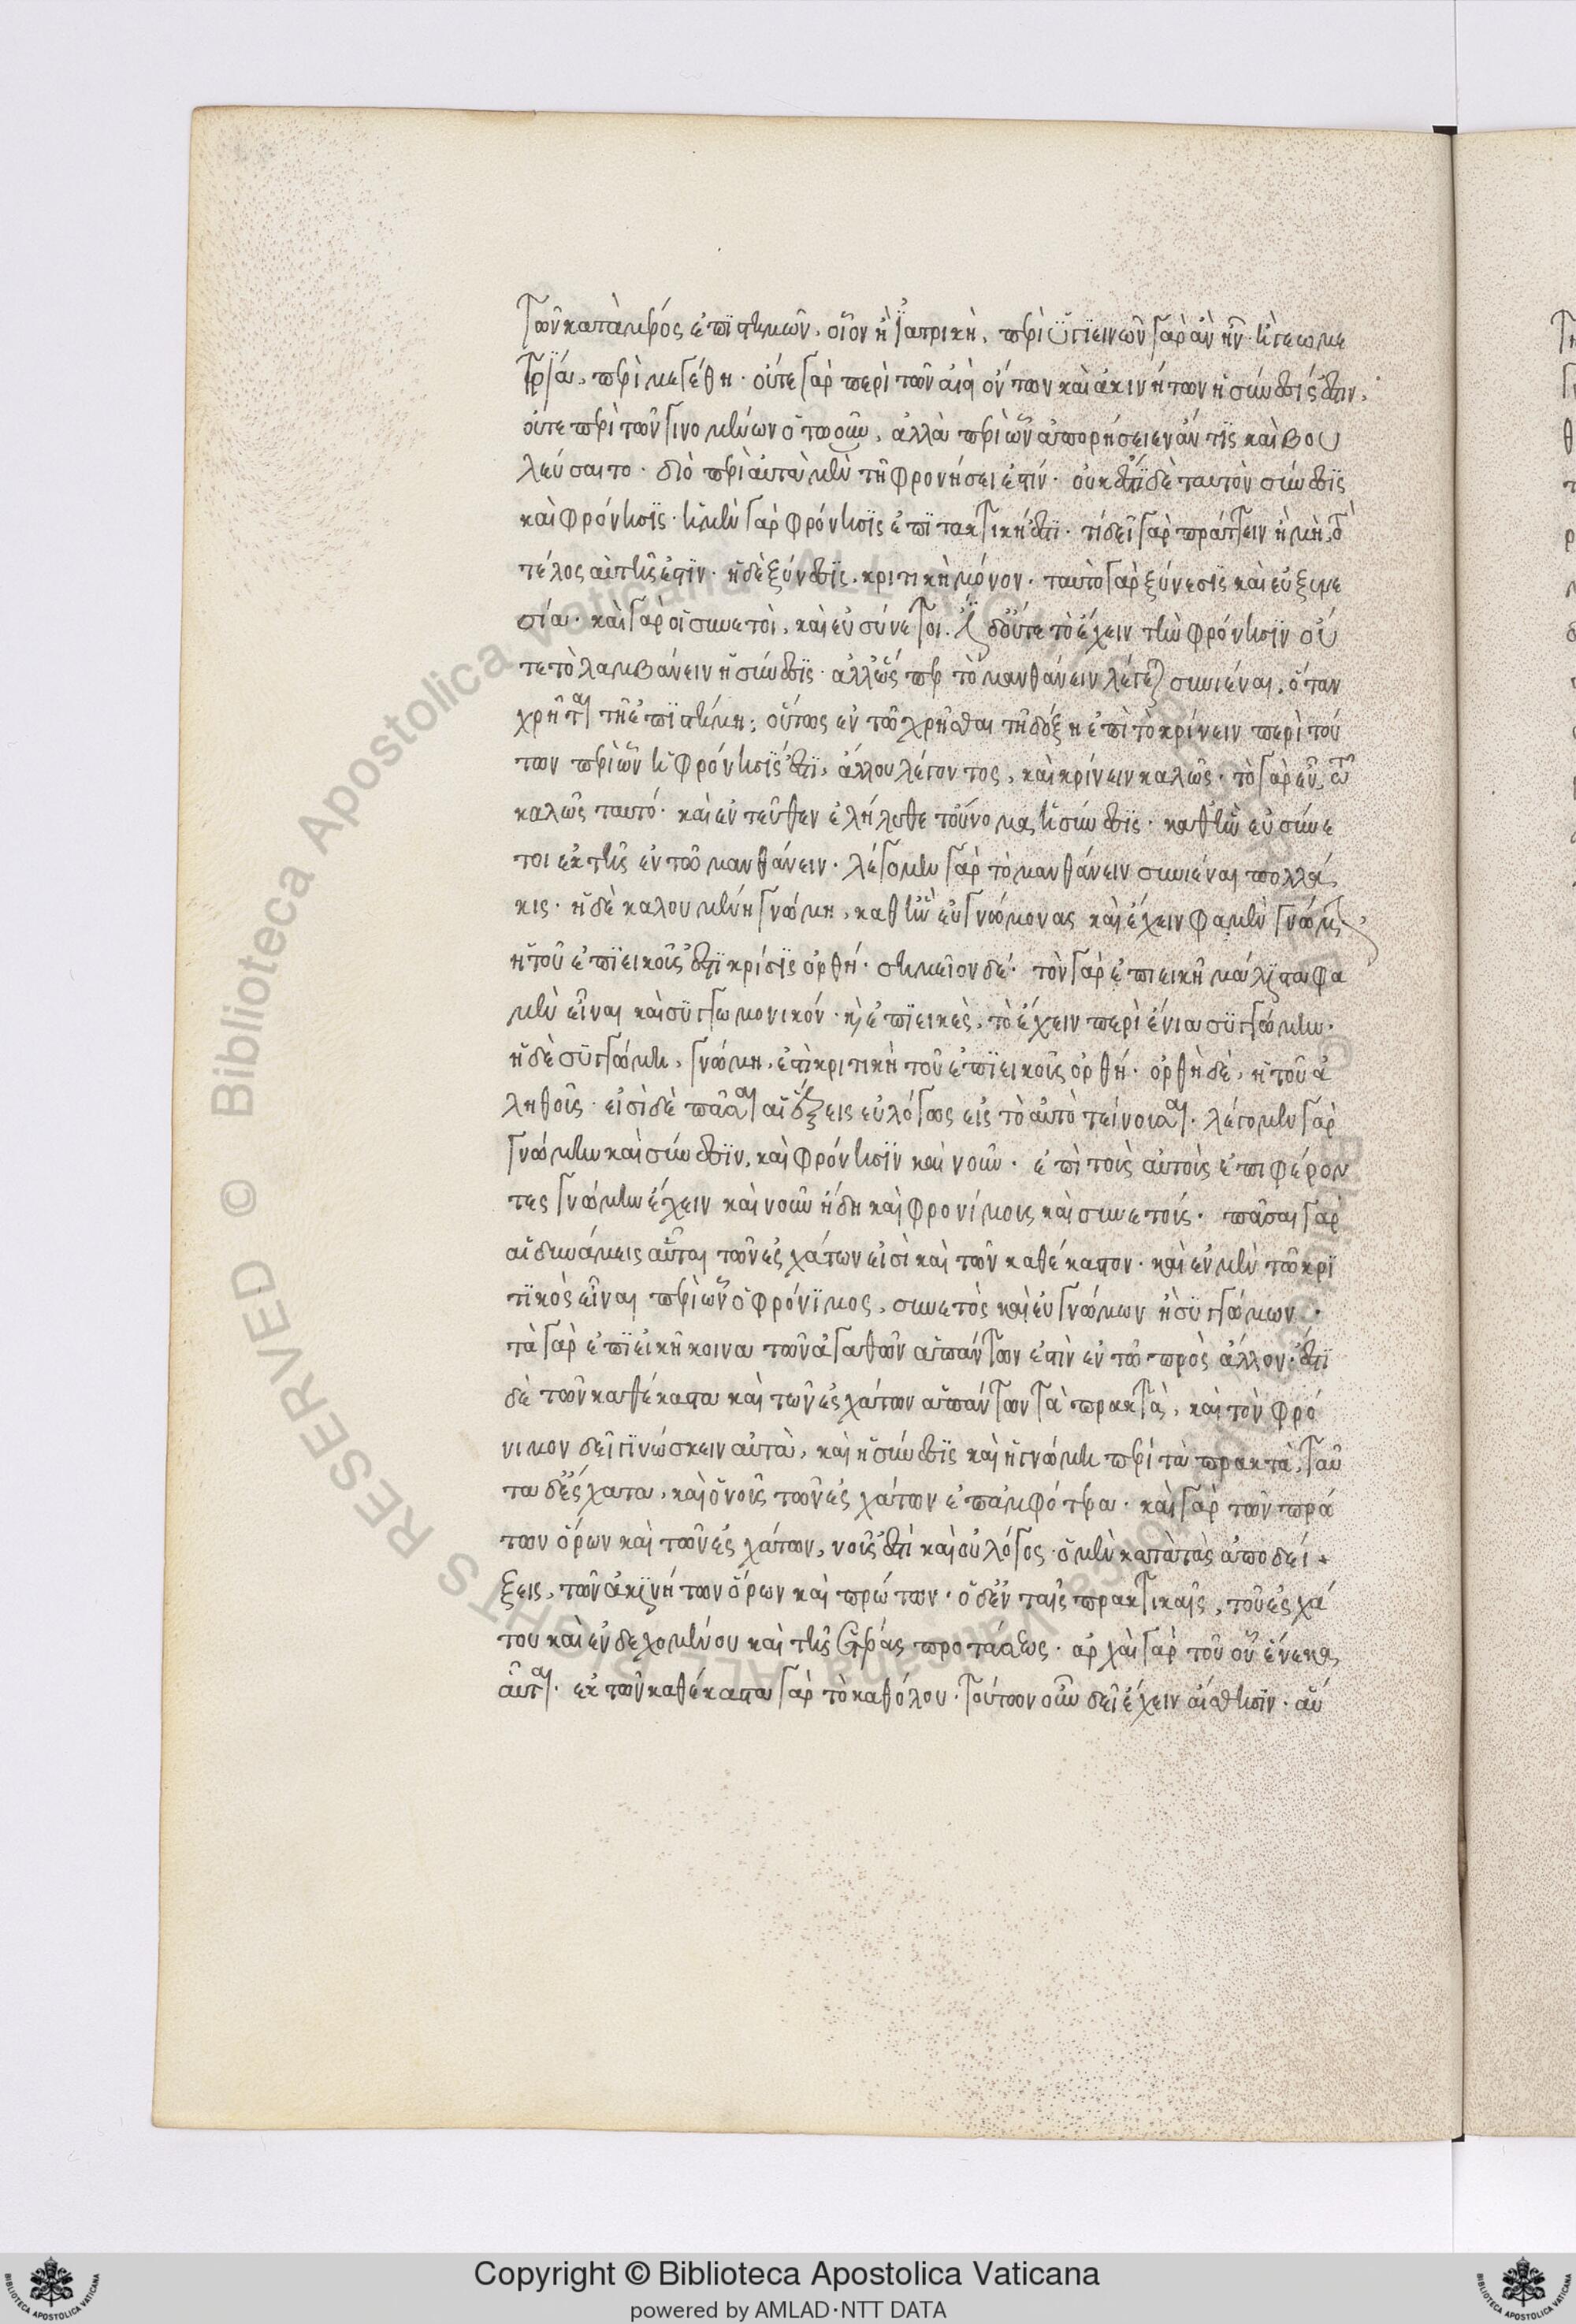 τῶν κατὰ μέρος ἐπιστημῶν, οἷον ἡ ἰατρικὴ, περὶ ὑγιεινῶν γὰρ ἂν ἦν· ἢ γεωμε
τρία, περὶ μεγέθη· οὔτε γὰρ περὶ τῶν ἀεὶ ὄντων καὶ ἀκινήτων ἡ σύνεσίς ἐστιν,
οὔτε περὶ τῶν γινομένων ὁτουοῦν, ἀλλὰ περὶ ὧν ἀπορήσειεν ἄν τις καὶ βου
λεύσαιτο· διὸ περὶ αὐτὰ μὲν τῇ φρονήσει ἐστίν· οὐκ ἔστι δὲ ταυτὸν σύνεσις
καὶ φρόνησις· ἡ μὲν γὰρ φρόνησις ἐπιτακτική ἐστι· τί δεῖ γὰρ πράττειν ἢ μὴ, τὸ
τέλος αὐτῆς ἐστιν· ἡ δὲ ξύνεσις, κριτικὴ μόνον· ταὐτὸ γὰρ ξύνεσις καὶ εὐξυνε
σία· καὶ γὰρ οἱ συνετοὶ, καὶ εὐσύνετοι. ἔστι δ' οὔτε τὸ ἔχειν τὴν φρόνησιν οὔ
τε τὸ λαμβάνειν ἡ σύνεσις· ἀλλ' ὥσπερ τὸ μανθάνειν λέγεται συνιέναι, ὅταν
χρῆται τῇ ἐπιστήμῃ· οὕτως ἐν τῷ χρῆσθαι τῇ δόξῃ ἐπὶ τὸ κρίνειν περὶ τού
των περὶ ὧν ἡ φρόνησίς ἐστι, ἄλλου λέγοντος, καὶ κρίνειν καλῶς· τὸ γὰρ εὖ, τῷ
καλῶς ταυτό· καὶ ἐντεῦθεν ἐλήλυθε τοὔνομα ἡ σύνεσις· καθ' ἣν εὐσύνε
τοι ἐκ τῆς ἐν τῷ μανθάνειν· λέγομεν γὰρ τὸ μανθάνειν συνιέναι πολλά
κις· ἡ δὲ καλουμένη γνώμη, καθ' ἣν εὐγνώμονας καὶ ἔχειν φαμὲν γνώμην
ἡ τοῦ ἐπιεικοῦς ἐστι κρίσις ὀρθή· σημεῖον δέ· τὸν γὰρ ἐπιεικῆ μάλιστα φα
μὲν εἶναι καὶ συγγνωμονικόν· καὶ ἐπιεικὲς, τὸ ἔχειν περὶ ἔνια συγγνώμην·
ἡ δὲ συγγνώμη, γνώμη, ἐστὶ κριτικὴ τοῦ ἐπιεικοῦς ὀρθή· ὀρθὴ δὲ, ἡ τοῦ ἀ
ληθοῦς· εἰσὶ δὲ πᾶσαι αἱ ἕξεις εὐλόγως εἰς τὸ αὐτὸ τείνουσαι· λέγομεν γὰρ
γνώμην καὶ σύνεσιν, καὶ φρόνησιν καὶ νοῦν· ἐπὶ τοὺς αὐτοὺς ἐπιφέρον
τες γνώμην ἔχειν καὶ νοῦν ἤδη καὶ φρονίμους καὶ συνετούς· πᾶσαι γὰρ
αἱ δυνάμεις αὗται τῶν ἐσχάτων εἰσὶ καὶ τῶν καθέκαστον· καὶ ἐν μὲν τῷ κρι
τικὸς εἶναι περὶ ὧν ὁ φρόνιμος, συνετὸς καὶ εὐγνώμων ἢ συγγνώμων·
τὰ γὰρ ἐπιεικῆ κοινὰ τῶν ἀγαθῶν ἁπάντων ἐστὶν ἐν τῷ πρὸς ἄλλον· ἔστι
δὲ τῶν καθέκαστα καὶ τῶν ἐσχάτων ἁπάντων τὰ πρακτὰ, καὶ τὸν φρό
νιμον δεῖ γινώσκειν αὐτὰ, καὶ ἡ σύνεσις καὶ ἡ γνώμη περὶ τὰ πρακτὰ, ταῦ
τα δ' ἔσχατα, καὶ ὁ νοῦς τῶν ἐσχάτων ἐπ' ἀμφότερα· καὶ γὰρ τῶν πρώ
των ὅρων καὶ τῶν ἐσχάτων, νοῦς ἐστὶ καὶ οὐ λόγος· ὁ μὲν κατὰ τὰς ἀποδεί
ξεις, τῶν ἀκινήτων ὅρων καὶ πρώτων· ὁ δ' ἐν ταῖς πρακτικαῖς, τοῦ ἐσχά
του καὶ ἐνδεχομένου καὶ τῆς ἑτέρας προτάσεως· ἀρχαὶ γὰρ τοῦ οὗ ἕνεκα
αὗται· ἐκ τῶν καθέκαστα γὰρ τὸ καθόλου· τούτων οὖν δεῖ ἔχειν αἴσθησιν· αὕ
Copyright © Biblioteca Apostolica Vaticana
powered by AMLAD·NTT DATA